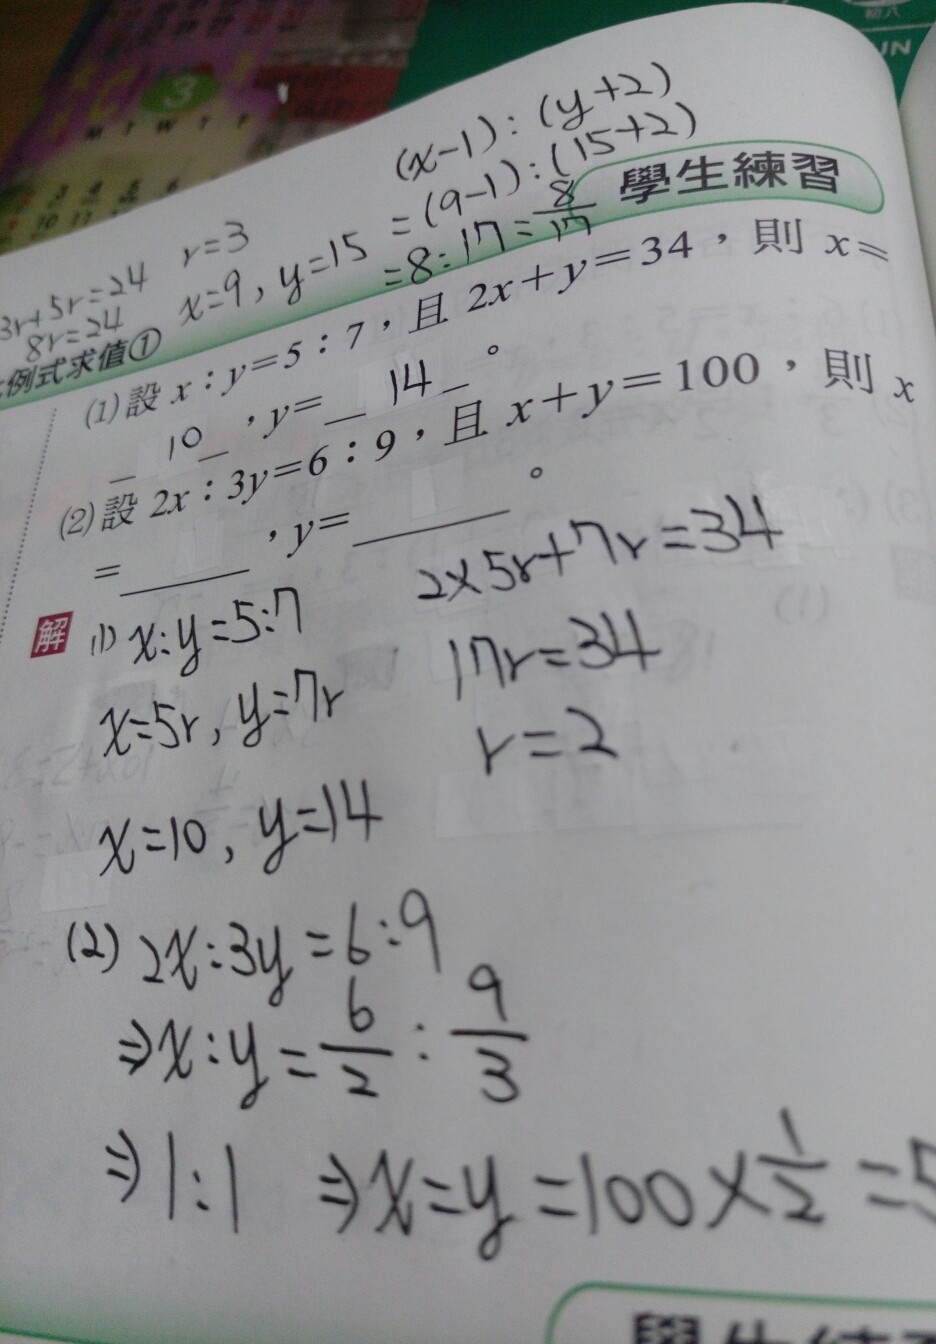 初八
UN
3
M T W T F
3 4 5 6
10 11
(x-1):(y+2)
=(9-1):(15+2)
=8:17=8/17
3r+5r=24
8r=24
r=3
x=9, y=15
學生練習
例式求值①
(1)設 x:y=5:7,且 2x+y=34,則 x=
10,y=14。
(2)設 2x:3y=6:9,且 x+y=100,則 x
=______,y=______。
解
(1) x:y=5:7
x=5r, y=7r
2×5r+7r=34
17r=34
r=2
x=10, y=14
(2) 2x:3y=6:9
⇒x:y=6/2:9/3
⇒1:1 ⇒x=y=100×1/2=5
學生練